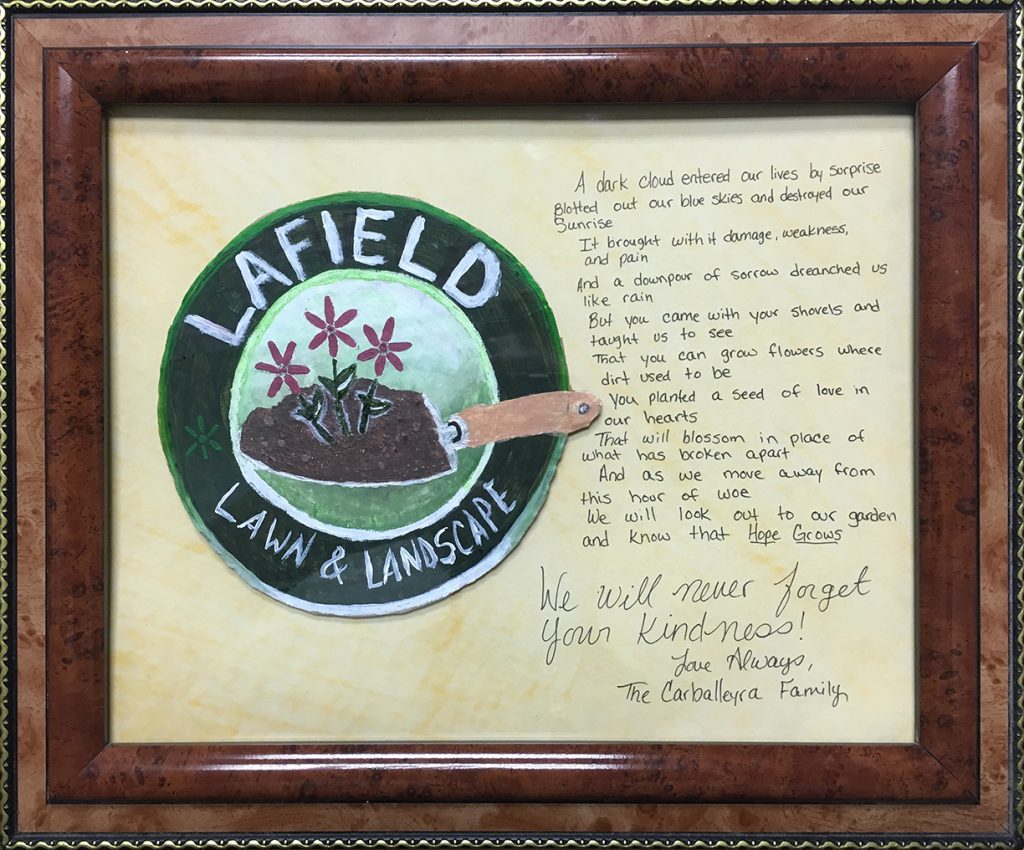 LAFIELD
LAWN & LANDSCAPE
A dark cloud entered our lives by surprise
Blotted out our blue skies and destroyed our
Sunrise
It brought with it damage, weakness,
and pain
And a downpour of sorrow dreanched us
like rain
But you came with your shovels and
taught us to see
That you can grow flowers where
dirt used to be
You planted a seed of love in
our hearts
That will blossom in place of
what has broken apart
And as we move away from
this hour of woe
We will look out to our garden
and know that Hope Grows
We will never forget
your kindness!
Love Always,
The Carballeyra Family